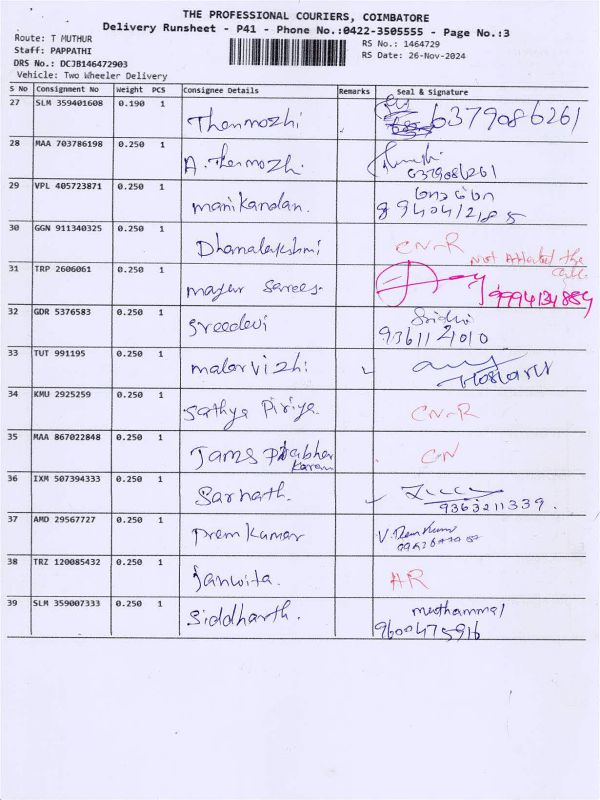 THE PROFESSIONAL COURIERS, COIMBATORE
Delivery Runsheet - P41 - Phone No.:0422-3505555 - Page No.:3
Route: T MUTHUR
Staff: PAPPATHI
DRS No.: DCJB146472903
Vehicle: Two Wheeler Delivery
RS No.: 1464729
RS Date: 26-Nov-2024
S No Consignment No Weight PCS Consignee Details Remarks Seal & Signature
27 SLM 359401608 0.190 1 Thenmozhi 6379086261
28 MAA 703786198 0.250 1 A. Thenmozhi 6379086261
29 VPL 405723871 0.250 1 manikandan.
30 GGN 911340325 0.250 1 Dhanalakshmi CN-R Not Attended the call.
31 TRP 2606061 0.250 1 mayur sarees. 9994134884
32 GDR 5376583 0.250 1 Sreedevi
33 TUT 991195 0.250 1 malarvizhi
34 KMU 2925259 0.250 1 Sathya Piriya. CN-R
35 MAA 867022848 0.250 1 Jams Prabhakaran CN
36 IXM 507394333 0.250 1 Sarnath. 9363211339.
37 AMD 29567727 0.250 1 Premkumar
38 TRZ 120085432 0.250 1 Janvita. AR
39 SLM 359007333 0.250 1 Siddharth. muthammal
9600475916